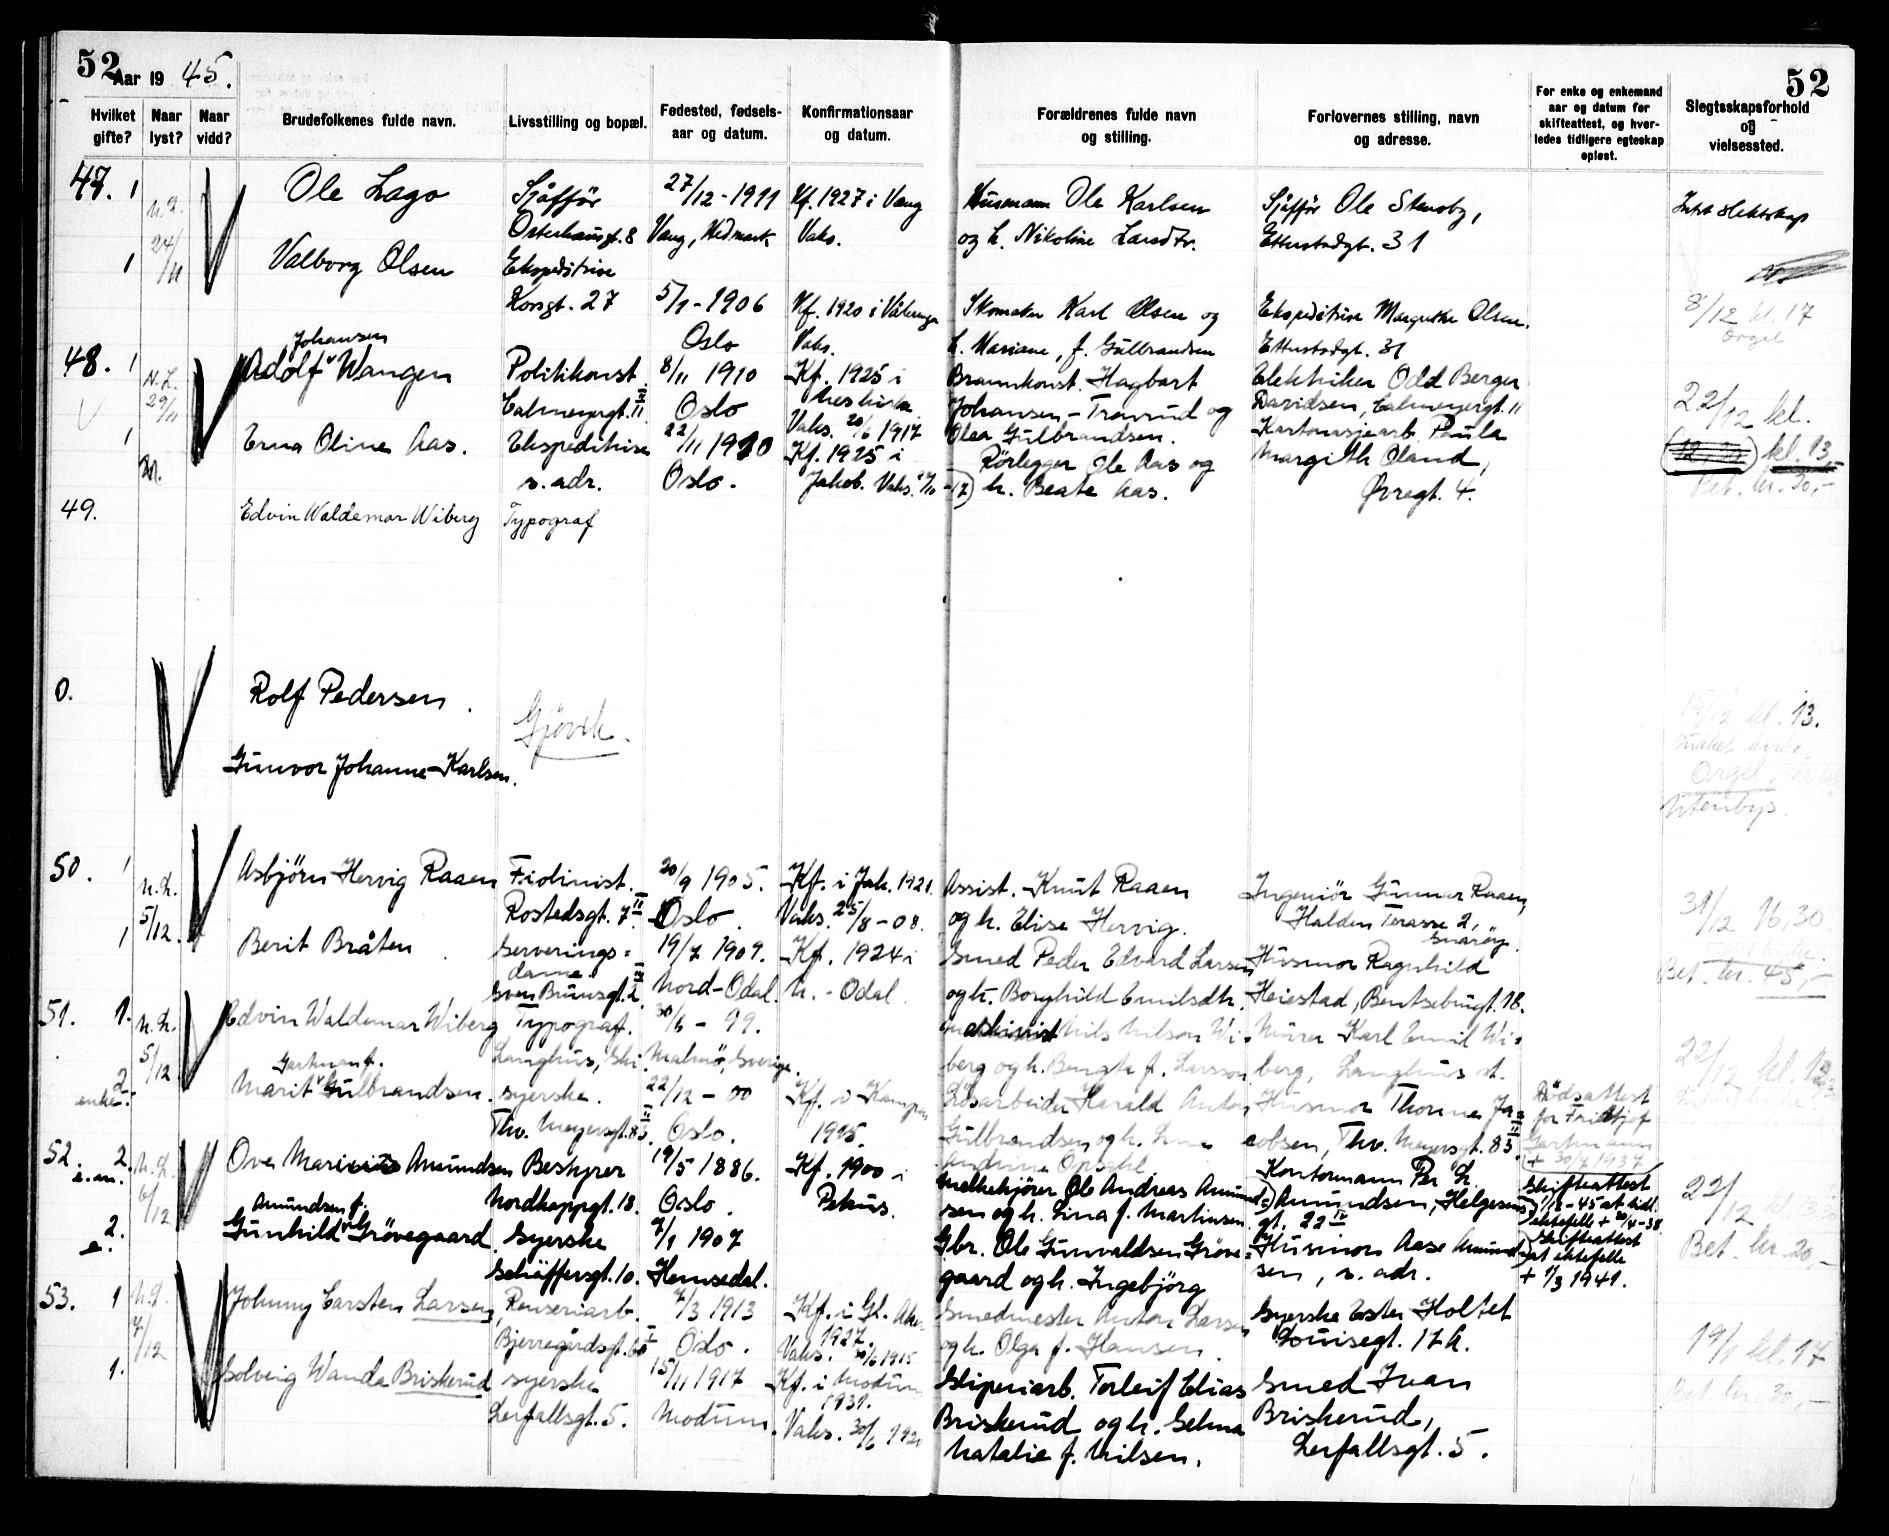 52
Aar 19 45.
52
Hvilket gifte?
Naar lyst?
Naar vidd?
Brudefolkenes fulde navn.
Livsstilling og bopæl.
Fødested, fødsels-
aar og datum.
Konfirmationsaar
og datum.
Forældrenes fulde navn
og stilling.
Forlovernes stilling, navn
og adresse.
For enke og enkemand
aar og datum for
skifteattest, og hvor-
ledes tidligere egteskap
opløst.
Slegtsskapsforhold
og
vielsessted.
47. 1
24/11
Ole Lago
Sjåffør
Osterhausgt. 8
27/12 - 1911
Vang, Hedmark
Kf. 1927 i Vang
Vaks.
Husmann Ole Karlsen
og h. Nikoline Larsdtr.
Sjåffør Ole Stensby,
Etterstadgt. 31
Intet slektskap
1
Valborg Olsen
Ekspeditrise
Korsgt. 27
5/1 - 1906
Oslo
Kf. 1920 i Vålerenga
Vaks.
Skomaker Karl Olsen og
h. Mariane, f. Gulbrandsen
Ekspeditrise Margrethe Olsen.
Etterstadgt. 31
8/12 kl. 17
Orgel
48. 1
N.L.
29/11
Johansen
Adolf Wangen
Politikonst.
Calmeyersgt. 11
8/11 1910
Oslo
Kf. 1925 i
Vaks. 20/6 1917
Braunkonst. Hagbart
Johansen - Travrud og
Olea Gulbrandsen.
Elektriker Odd Berger
Davidsen, Calmeyergt. 11
22/12 kl.
kl. 13
Bet. kr. 30,-
1
Erna Oline Aas.
Ekspeditrise
s. adr.
22/11 1910
Oslo.
Kf. 1925 i
Jakob. Vaks. 2/10 - 17)
Rørlegger Ole Aas og
h. Beate Aas.
Kartonasjearb. Paula
Margith Oland,
Øvregt. 4.
49.
Edvin Waldemar Wiberg
Typograf
0.
Rolf Pedersen.
Gjøvik.
Gunvor Johanne Karlsen.
kl. 13.
Orgel
Utenbys.
50. 1
N.L.
5/12.
Asbjörn Hervig Raaen
Fiolinist.
Rostedsgt. 7 II
20/9 1905.
Oslo.
Kf. i Jak. 1921.
Vaks. 25/8 - 08.
Assist. Knut Raaen
og h. Elise Hervig.
Ingeniör Gunnar Raaen,
Halden Terasse 2,
Snaröy.
31/12 16,30
Bet. kr. 45,-
1
Berit Bråten
Serverings=
dame.
Sven Brunsgt. 2 III
19/7 1909.
Nord-Odal.
Kf. 1924 i
N.-Odal.
Smed Peder Edvard Larsen
og h. Borghild Emilsdtr.
Husmor Ragnhild
Heiestad, Bentsebrugt. 18.
51. 1.
N.L.
5/12
Edvin Waldemar Wiberg
Typograf.
Langhus, Ski.
30/6 - 99.
Malmö, Sverige.
Maskinist Nils Nilson Wi-
berg og h. Bengta f. Larsson.
Murer Karl Emil Wi=
berg, Langhus st.
22/12 kl. 12
2
enke.
Gartmann f.
Marit Gulbrandsen.
syerske.
Thv. Meyersgt. 83 III
22/12 - 00
Oslo.
Kf. i Kampen
1915.
Lösarbeider Harald Anton
Gulbrandsen og h. Lina
Andrine Opsahl
Husmor Thorine Ja=
cobsen, Thv. Meyersgt. 83 III
Dödsattest
for Fridtjof
Gartmann
+ 30/7 1937
52. 2.
e.m.
N.L.
6/12
Ove Marinius Amundsen
Bestyrer
Nordkappgt. 18.
19/5 1886.
Oslo.
Kf. 1900 i
Petrus.
Melkekjörer Ole Andreas Amund=
sen og h. Lina f. Martinsen.
Kontormann Per L.
Amundsen, Helgesens
gt. 22 IV
Skifteattest
1/12 - 45 at tidl.
ektefelle + 20/4 - 38
22/12
Bet. kr. 20,-
2.
e.
Amundsen f.
Gunhild Grövegaard.
Syerske
Schöffersgt. 10.
7/1 1907
Hemsedal.
Gbr. Ole Gunvaldsen Gröve=
gaard og h. Ingebjörg
Husmor Aase Amund=
sen, s. adr.
Skifteattest
at ektefelle
+ 1/3 1941.
53. 1
N.L.
7/12
Johnny Carsten Larsen,
Renseriarb.
Bjerregårdsgt. 60 I
7/3 1913
Oslo.
Kf. i Gl. Aker
1927.
Vaks. 30/6 1915
Smedmester Anton Larsen
og h. Olga f. Hansen.
Syerske Ester Holtet
Louisegt. 17 A.
19/1 kl. 17
Bet. kr. 30,-
1.
Solveig Wanda Briskerud
syerske
Lerfallsgt. 5.
15/11 1917
Modum.
Kf. i Modum
1931.
Vaks. 30/6 1920
Sliperiarb. Torleif Elias
Briskerud og h. Selma
Natalie f. Nilsen.
Smed Ivan
Briskerud,
Lerfallsgt. 5.